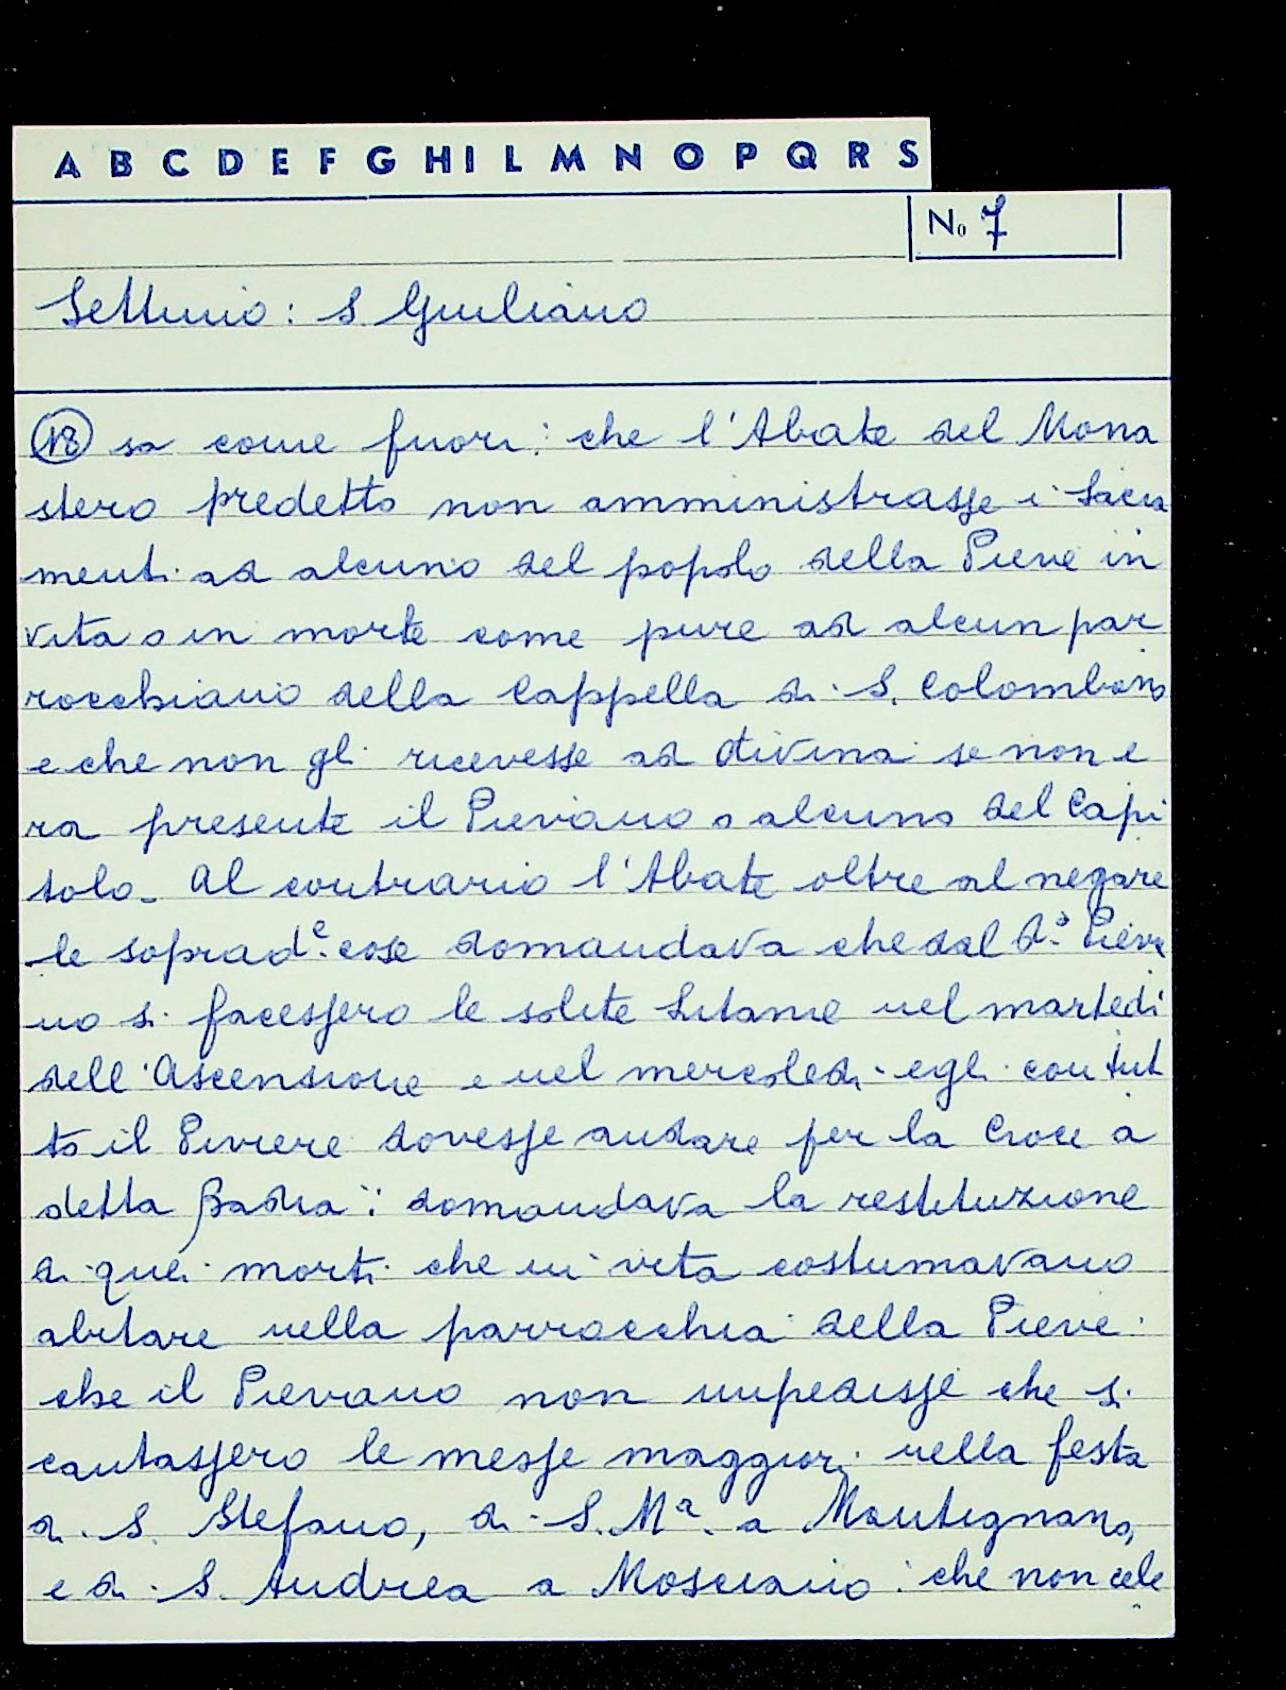 A B C D E F G H I L M N O P Q R S
No 7
Settimo: S. Giuliano
(18) sa come fuori: che l'Abate del Mona
stero predetto non amministrasse i Sacra
menti ad alcuno del popolo della Pieve in
vita o in morte come pure ad alcun par
rocchiano della Cappella di S. Colombano
e che non gli ricevesse ad divina se non e
ra presente il Pievano o alcuno del Capi
tolo. Al contrario l'Abate oltre al negare
le soprad.e cose domandava che dal d.o Pieva
no si facessero le solite Litanie nel martedì
dell'Ascensione e nel mercoledì egli con tut
to il Piviere dovesse andare per la Croce a
detta Badia: domandava la restituzione
di quei morti che in vita costumavano
abitare nella parrocchia della Pieve:
che il Pievano non impedisse che si
cantassero le messe maggiori nella festa
di S. Stefano, di S. M.a a Mantignano,
e di S. Andrea a Mosciano: che non cele